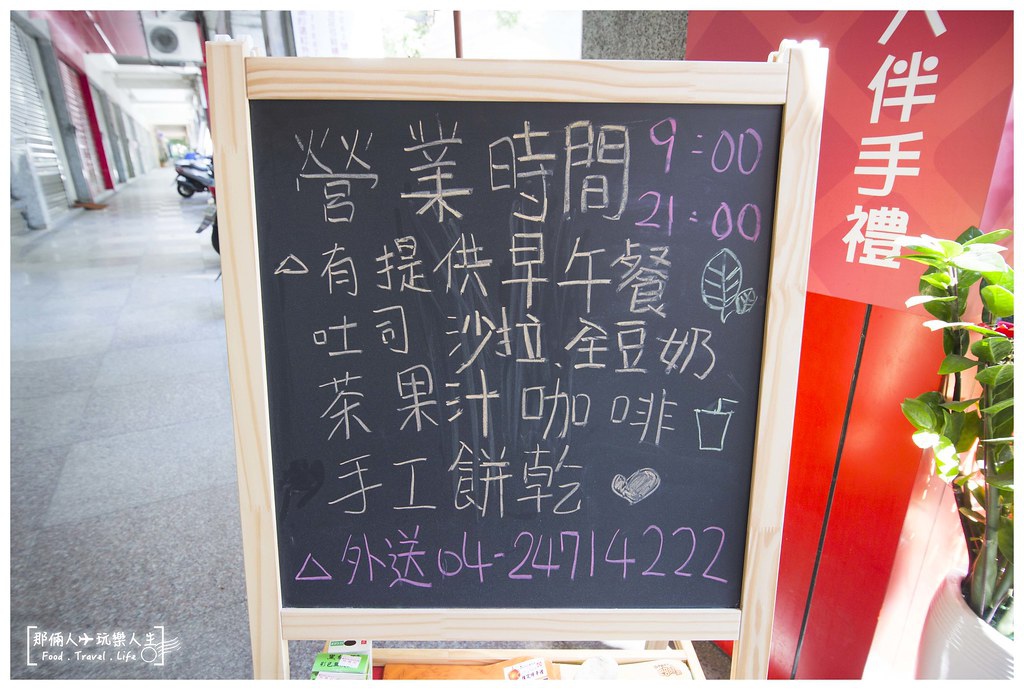 營業時間 9:00
21:00
△有提供早午餐
吐司 沙拉、全豆奶
茶果汁咖啡
手工餅乾
△外送04-24714222
人伴手禮
那倆人玩樂人生
Food . Travel . Life